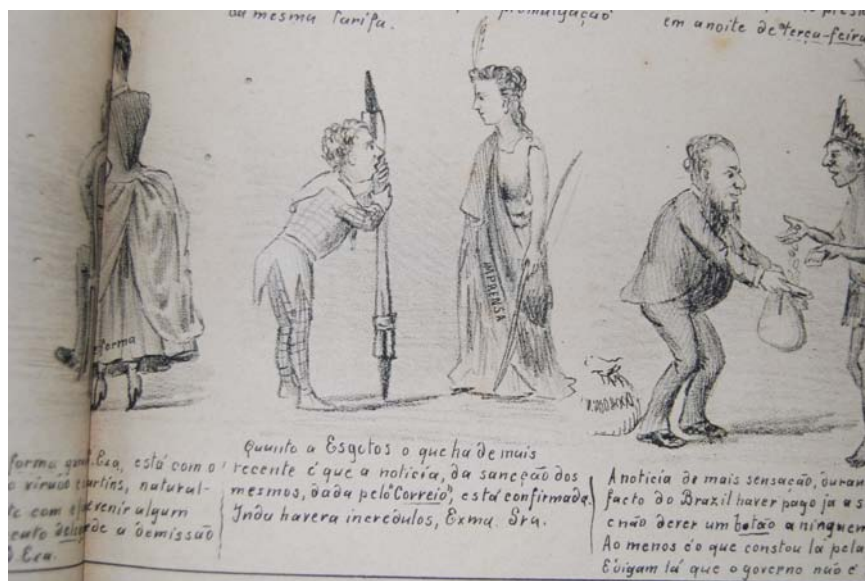 da mesma Tarifa.
promulgação
em a noite de terça-feira
forma
IMPRENSA
forma
Exa, está com o
Martins, natural-
te com
prevenir algum
de a demissão
Exa.
Quanto a Esgotos o que ha de mais
recente é que a noticia, da sancção dos
mesmos, dada pelo "Correio", está confirmada.
Inda havera incredulos, Exma. Sra.
A noticia de mais sensação, duran
facto do Brazil haver pago ja a s
e não dever um botão a ninguem
Ao menos é o que constou lá pela
E digam lá que o governo não é